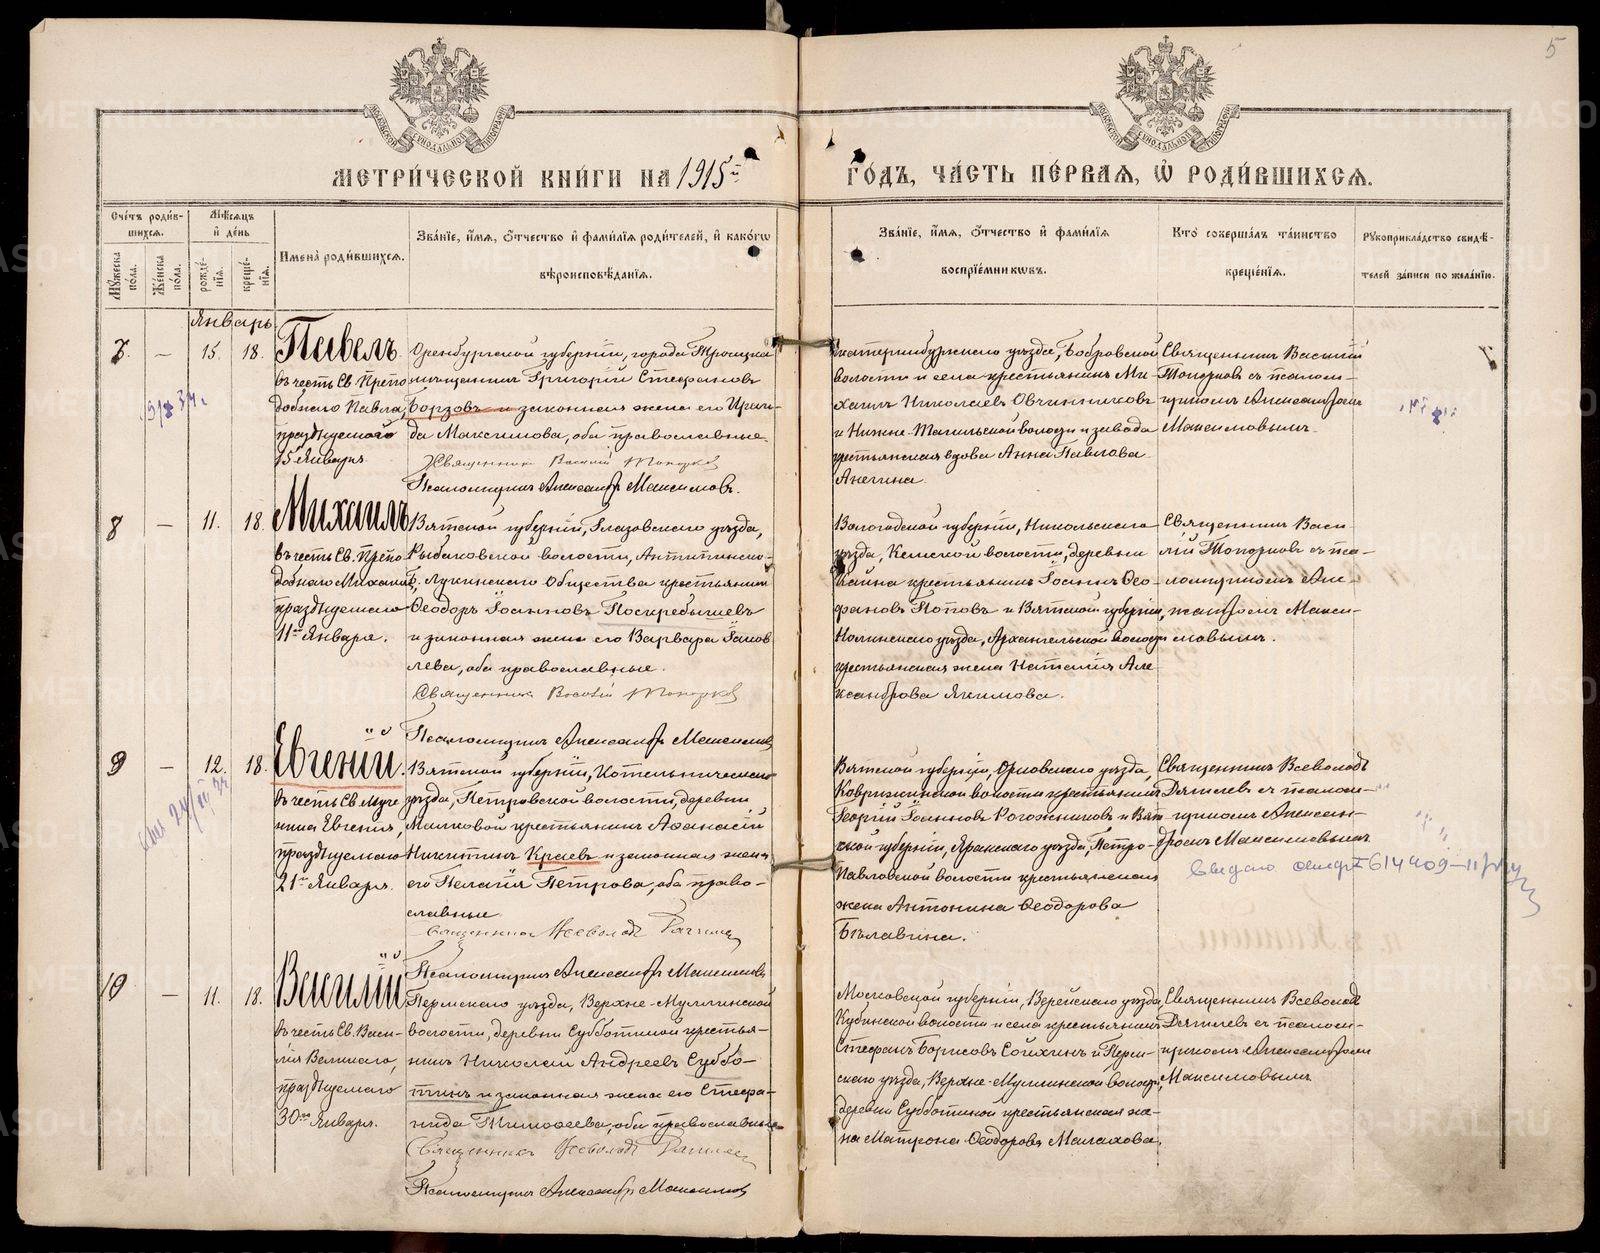 5
МЕТРИ́ЧЕСКОЙ КНИ́ГИ НА 1915й
ГО́ДЪ, ЧА́СТЬ ПЕ́РВАЯ, Ѽ РОДИ́ВШИХСЯ.
Сче́тъ роди́в-
шихся.
Мꙋ́жеска по́ла.
Же́нска по́ла.
Мѣ́сяцъ
и҆ де́нь
рожде́-
нїя.
креще́-
нїя.
И҆мена̀ роди́вшихся.
Зва́нїе, и҆́мя, ѻ҆́тчество и҆ фами́лїя роди́телей, и҆ како́гѡ
вѣроисповѣ́данїя.
Зва́нїе, и҆́мя, ѻ҆́тчество и҆ фами́лїя
воспрїе́мникѡвъ.
Кто̀ соверша́лъ та́инство
креще́нїя.
Рꙋкоприкла́дство свидѣ́-
телей за́писи по жела́нїю.
Январь
7
—
15.
18.
Павелъ.
въ честь Св. Препо
добнаго Павла,
празднуемаго
15 Января
Оренбургской губернiи, города Троицка
мѣщанинъ Григорiй Стефановъ
Борзовъ и законная жена его Ираи-
да Максимова, оба православные.
Священникъ Василiй Топорковъ
Псаломщикъ Александръ Максимовъ.
Екатеринбургскаго уѣзда, Бобровской
волости и села крестьянинъ Ми-
хаилъ Николаевъ Овчинниковъ
и Нижне-Тагильской волости и завода
крестьянская вдова Анна Павлова
Анегина.
Священникъ Василiй
Топорковъ съ псалом-
щикомъ Александромъ
Максимовымъ.
8
—
11.
18.
Михаилъ
въ честь Св. Препо
добнаго Михаила,
празднуемаго
11го Января.
Вятской губернiи, Глазовскаго уѣзда,
Рыбаковской волости, Антипинско-
Лукинскаго Общества крестьянинъ
Ѳеодоръ Iоанновъ Поскребышевъ
и законная жена его Варвара Iаков
лева, оба православные.
Священникъ Василiй Топорковъ
Псаломщикъ Александръ Максимовъ
Вологодской губернiи, Никольскаго
уѣзда, Кемской волости, деревни
крестьянинъ Iоаннъ Ѳео-
фановъ Поповъ и Вятской губернiи,
Нолинскаго уѣзда, Архангельской волости
крестьянская жена Наталiя Але
ксандрова Якимова.
Священникъ Васи
лiй Топорковъ съ пса-
ломщикомъ Але-
ксандромъ Макси-
мовымъ.
9
—
12.
18.
Евгенiй.
въ честь Св. Муче
ника Евгенiя,
празднуемаго
21го Января.
Вятской губернiи, Котельническаго
уѣзда, Петровской волости, деревни
Малковой крестьянинъ Аѳанасiй
Никитинъ Краевъ и законная жена
его Пелагiя Петрова, оба право-
славные.
Священникъ Всеволодъ
Псаломщикъ Александръ Максимовъ
Вятской губернiи, Орловскаго уѣзда,
Коврижинской волости крестьянинъ
Георгiй Iоанновъ Рогожниковъ и Вят
ской губернiи, Яранскаго уѣзда, Петро-
Павловской волости крестьянская
жена Антонина Ѳеодорова
Бѣлавина.
Священникъ Всеволодъ
съ псалом-
щикомъ Алексан-
дромъ Максимовымъ
10
—
11.
18.
Василiй
въ честь Св. Васи-
лiя Великаго,
празднуемаго
30го Января.
Пермскаго уѣзда, Верхне-Муллинской
волости, деревни Субботиной крестья-
нинъ Николай Андреевъ Суббо-
тинъ и законная жена его Стефа-
нида Тимоѳеева, оба православные.
Священникъ Всеволодъ
Псаломщикъ Александръ Максимовъ
Московской губернiи, Верейскаго уѣзда,
Кубинской волости и села крестьянинъ
Стефанъ Борисовъ Сойкинъ и Перм-
скаго уѣзда, Верхне-Муллинской волости,
деревни Субботиной крестьянская же-
на Матрона Ѳеодорова Малахова.
Священникъ Всеволодъ
съ псалом-
щикомъ Александромъ
Максимовымъ